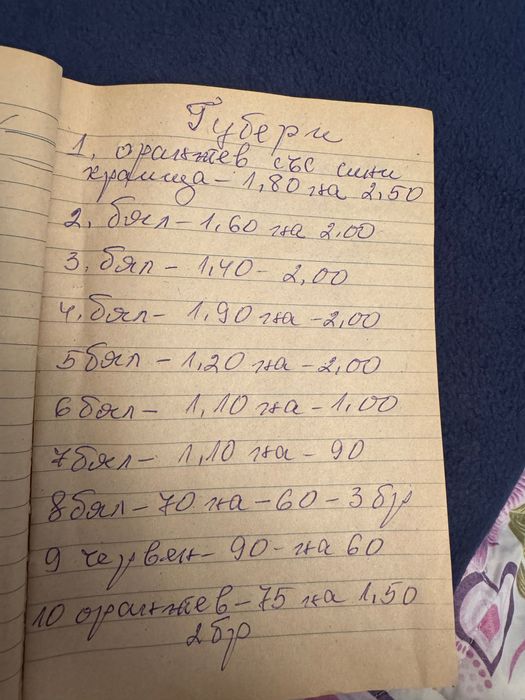 Губери
1, оранжев със сини
краища - 1,80 на 2,50
2, бял - 1,60 на 2,00
3, бял - 1,40 - 2,00
4, бял - 1,90 на - 2,00
5 бял - 1,20 на - 2,00
6 бял - 1,10 на - 1,00
7 бял - 1,10 на - 90
8 бял - 70 на - 60 - 3 бр
9 червен - 90 - на 60
10 оранжев - 75 на 1,50
2 бр